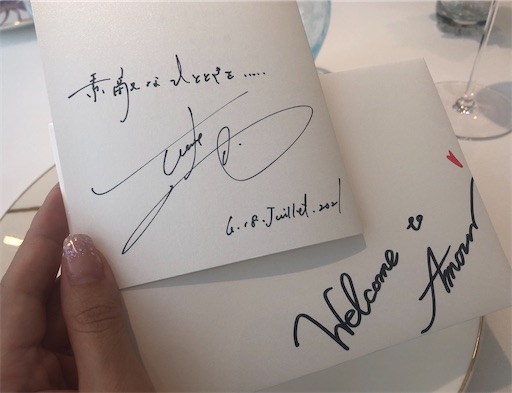 素敵なひとときを.....
Le.18.Juillet.2021
Welcome
Amour